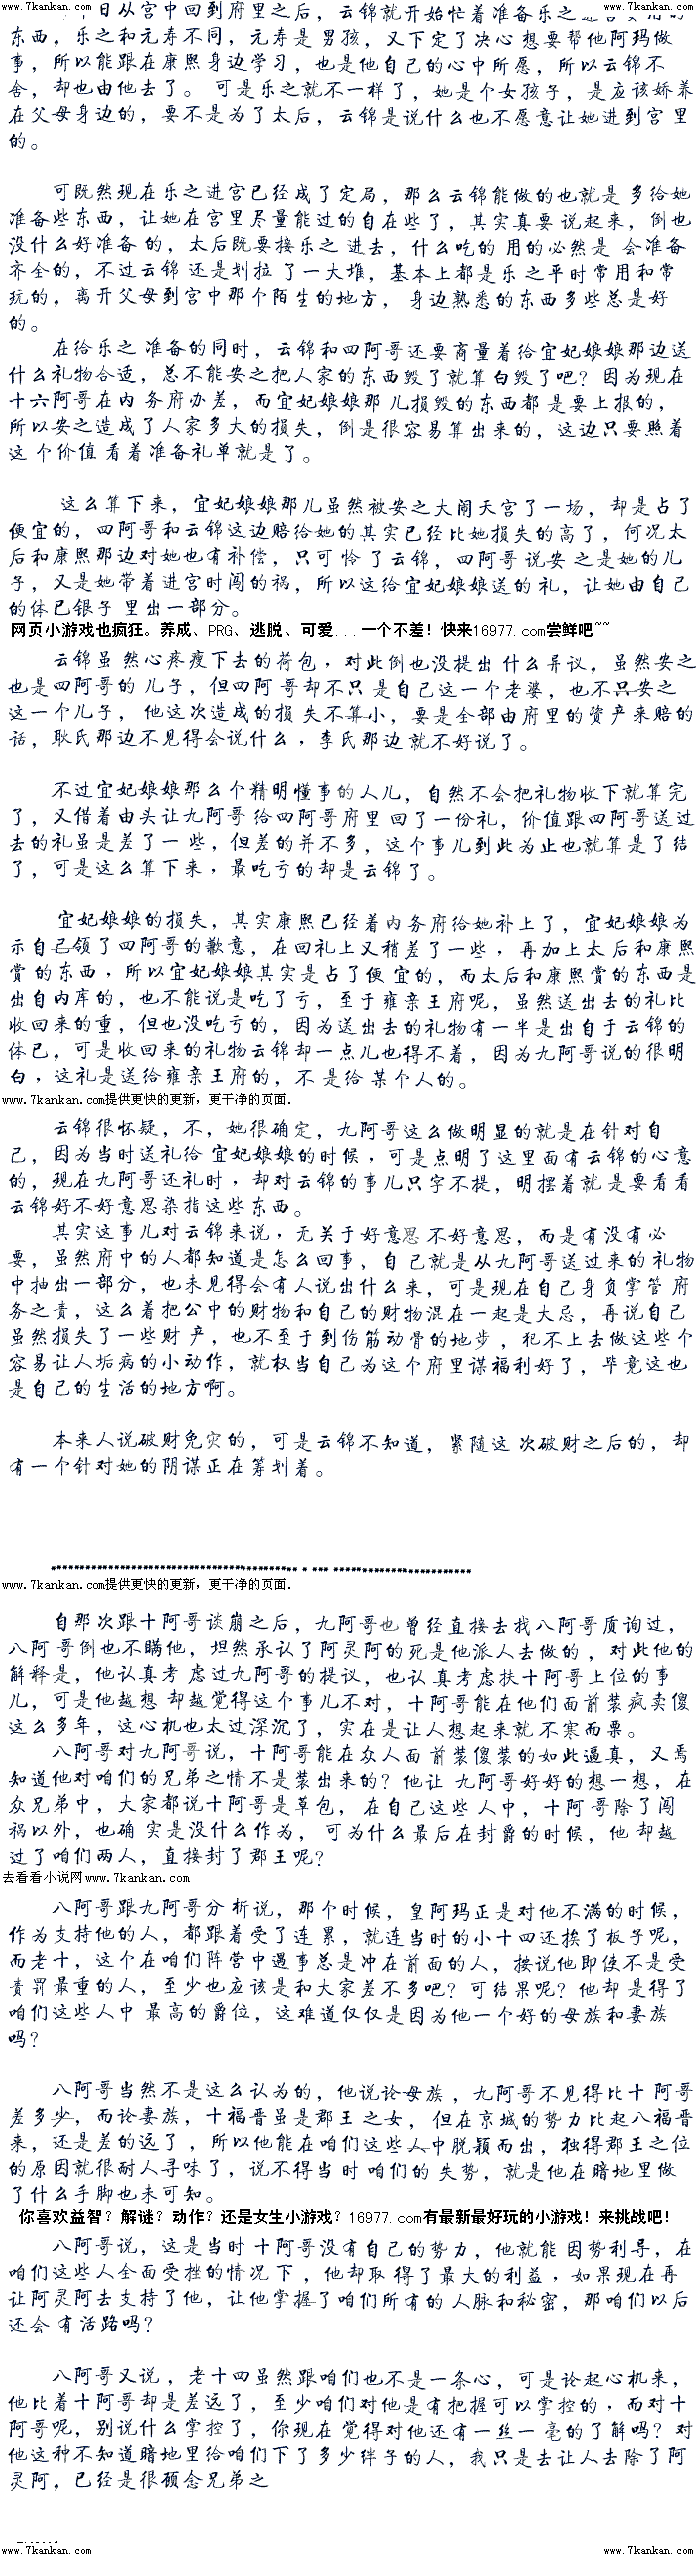 www.7kankan.com www.7kankan.com
日从宫中回到府里之后，云锦就开始忙着准备乐之
东西，乐之和元寿不同，元寿是男孩，又下定了决心想要帮他阿玛做
事，所以能跟在康熙身边学习，也是他自己的心中所愿，所以云锦不
舍，却也由他去了。可是乐之就不一样了，她是个女孩子，是应该娇养
在父母身边的，要不是为了太后，云锦是说什么也不愿意让她进到宫里
的。
可既然现在乐之进宫已经成了定局，那么云锦能做的也就是多给她
准备些东西，让她在宫里尽量能过的自在些了，其实真要说起来，倒也
没什么好准备的，太后既要接乐之进去，什么吃的用的必然是会准备
齐全的，不过云锦还是划拉了一大堆，基本上都是乐之平时常用和常
玩的，离开父母到宫中那个陌生的地方，身边熟悉的东西多些总是好
的。
在给乐之准备的同时，云锦和四阿哥还要商量着给宜妃娘娘那边送
什么礼物合适，总不能安之把人家的东西毁了就算白毁了吧？因为现在
十六阿哥在内务府办差，而宜妃娘娘那儿损毁的东西都是要上报的，
所以安之造成了人家多大的损失，倒是很容易算出来的，这边只要照着
这个价值看着准备礼单就是了。
这么算下来，宜妃娘娘那儿虽然被安之大闹天宫了一场，却是占了
便宜的，四阿哥和云锦这边赔给她的其实已经比她损失的高了，何况太
后和康熙那边对她也有补偿，只可怜了云锦，四阿哥说安之是她的儿
子，又是她带着进宫时闯的祸，所以这给宜妃娘娘送的礼，让她由自己
的体已银子里出一部分。
网页小游戏也疯狂。养成、PRG、逃脱、可爱...一个不差！快来16977.com尝鲜吧~~
云锦虽然心疼瘦下去的荷包，对此倒也没提出什么异议，虽然安之
也是四阿哥的儿子，但四阿哥却不只是自己这一个老婆，也不只安之
这一个儿子，他这次造成的损失不算小，要是全部由府里的资产来赔的
话，耿氏那边不见得会说什么，李氏那边就不好说了。
不过宜妃娘娘那么个精明懂事的人儿，自然不会把礼物收下就算完
了，又借着由头让九阿哥给四阿哥府里回了一份礼，价值跟四阿哥送过
去的礼虽是差了一些，但差的并不多，这个事儿到此为止也就算是了结
了，可是这么算下来，最吃亏的却是云锦了。
宜妃娘娘的损失，其实康熙已经着内务府给她补上了，宜妃娘娘为
示自己领了四阿哥的歉意，在回礼上又稍差了一些，再加上太后和康熙
赏的东西，所以宜妃娘娘其实是占了便宜的，而太后和康熙赏的东西是
出自内库的，也不能说是吃了亏，至于雍亲王府呢，虽然送出去的礼比
收回来的重，但也没吃亏的，因为送出去的礼物有一半是出自于云锦的
体已，可是收回来的礼物云锦却一点儿也得不着，因为九阿哥说的很明
白，这礼是送给雍亲王府的，不是给某个人的。
www.7kankan.com提供更快的更新，更干净的页面.
云锦很怀疑，不，她很确定，九阿哥这么做明显的就是在针对自
己，因为当时送礼给宜妃娘娘的时候，可是点明了这里面有云锦的心意
的，现在九阿哥还礼时，却对云锦的事儿只字不提，明摆着就是要看看
云锦好不好意思染指这些东西。
其实这事儿对云锦来说，无关于好意思不好意思，而是有没有必
要，虽然府中的人都知道是怎么回事，自己就是从九阿哥送过来的礼物
中抽出一部分，也未见得会有人说出什么来，可是现在自己身负掌管府
务之责，这么着把公中的财物和自己的财物混在一起是大忌，再说自己
虽然损失了一些财产，也不至于到伤筋动骨的地步，犯不上去做这些个
容易让人垢病的小动作，就权当自己为这个府里谋福利好了，毕竟这也
是自己的生活的地方啊。
本来人说破财免灾的，可是云锦不知道，紧随这次破财之后的，却
有一个针对她的阴谋正在筹划着。
****************************************** * *** ***********************
www.7kankan.com提供更快的更新，更干净的页面.
自那次跟十阿哥谈崩之后，九阿哥也曾经直接去找八阿哥质询过，
八阿哥倒也不瞒他，坦然承认了阿灵阿的死是他派人去做的，对此他的
解释是，他认真考虑过九阿哥的提议，也认真考虑扶十阿哥上位的事
儿，可是他越想却越觉得这个事儿不对，十阿哥能在他们面前装疯卖傻
这么多年，这心机也太过深沉了，实在是让人想起来就不寒而栗。
八阿哥对九阿哥说，十阿哥能在众人面前装傻装的如此逼真，又焉
知道他对咱们的兄弟之情不是装出来的？他让九阿哥好好的想一想，在
众兄弟中，大家都说十阿哥是草包，在自己这些人中，十阿哥除了闯
祸以外，也确实是没什么作为，可为什么最后在封爵的时候，他却越
过了咱们两人，直接封了郡王呢？
去看看小说网www.7kankan.com
八阿哥跟九阿哥分析说，那个时候，皇阿玛正是对他不满的时候，
作为支持他的人，都跟着受了连累，就连当时的小十四还挨了板子呢，
而老十，这个在咱们阵营中遇事总是冲在前面的人，按说他即使不是受
责罚最重的人，至少也应该是和大家差不多吧？可结果呢？他却是得了
咱们这些人中最高的爵位，这难道仅仅是因为他一个好的母族和妻族
吗？
八阿哥当然不是这么认为的，他说论母族，九阿哥不见得比十阿哥
差多少，而论妻族，十福晋虽是郡王之女，但在京城的势力比起八福晋
来，还是差的远了，所以他能在咱们这些人中脱颖而出，独得郡王之位
的原因就很耐人寻味了，说不得当时咱们的失势，就是他在暗地里做
了什么手脚也未可知。
你喜欢益智？解谜？动作？还是女生小游戏？16977.com有最新最好玩的小游戏！来挑战吧！
八阿哥说，这是当时十阿哥没有自己的势力，他就能因势利导，在
咱们这些人全面受挫的情况下，他却取得了最大的利益，如果现在再
让阿灵阿去支持了他，让他掌握了咱们所有的人脉和秘密，那咱们以后
还会有活路吗？
八阿哥又说，老十四虽然跟咱们也不是一条心，可是论起心机来，
他比着十阿哥却是差远了，至少咱们对他是有把握可以掌控的，而对十
阿哥呢，别说什么掌控了，你现在觉得对他还有一丝一毫的了解吗？对
他这种不知道暗地里给咱们下了多少绊子的人，我只是去让人去除了阿
灵阿，已经是很顾念兄弟之
www.7kankan.com www.7kankan.com